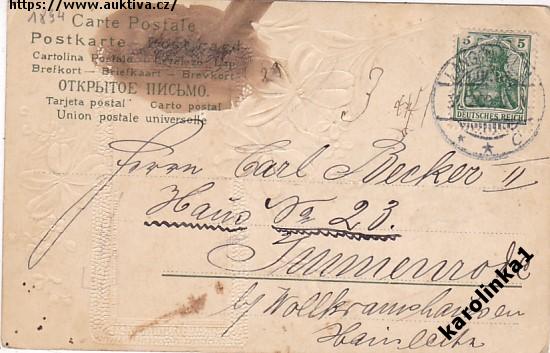 https://www.auktiva.cz/
1894
Carte Postale
Postkarte
Cartolina Postale
Brefkort — Briefkaart — Brevkort
ОТКРЫТОЕ ПИСЬМО.
Tarjeta postal Carto postal
Union postale universelle
5 5
DEUTSCHES REICH
Herrn Carl Becker II
Haus No 23.
Immenrode
b/ Wolkramshausen
Hainleite
karolinka1